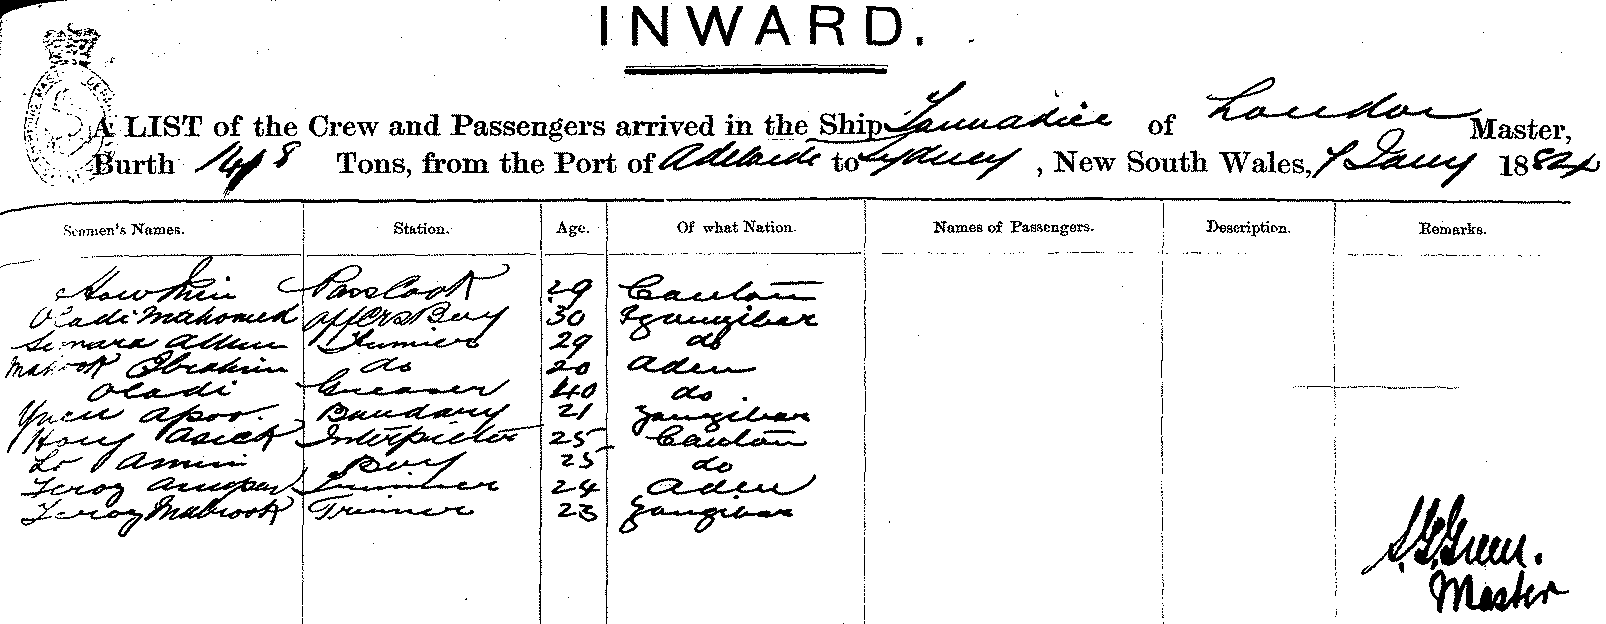 INWARD.
A LIST of the Crew and Passengers arrived in the Ship Tannadice of London Master,
Burth 1418 Tons, from the Port of Adelaide to Sydney, New South Wales, 7 Jany 1884
Seamen's Names. Station. Age. Of what Nation. Names of Passengers. Description. Remarks.
How Pass Cook 29 Canton
Oladi Mahomed Offers Boy 30 Zanzibar
29 do
Ebrahim do 20 Aden
Oladi Greaser 40 do
Apoo. Bandary 21 Zanzibar
Hong Asick Interpreter 25 Canton
Boy 25 do
Feroz Trimmer 24 Aden
Feroz Mabrook Trimmer 23 Zanzibar
S. G. Green.
Master